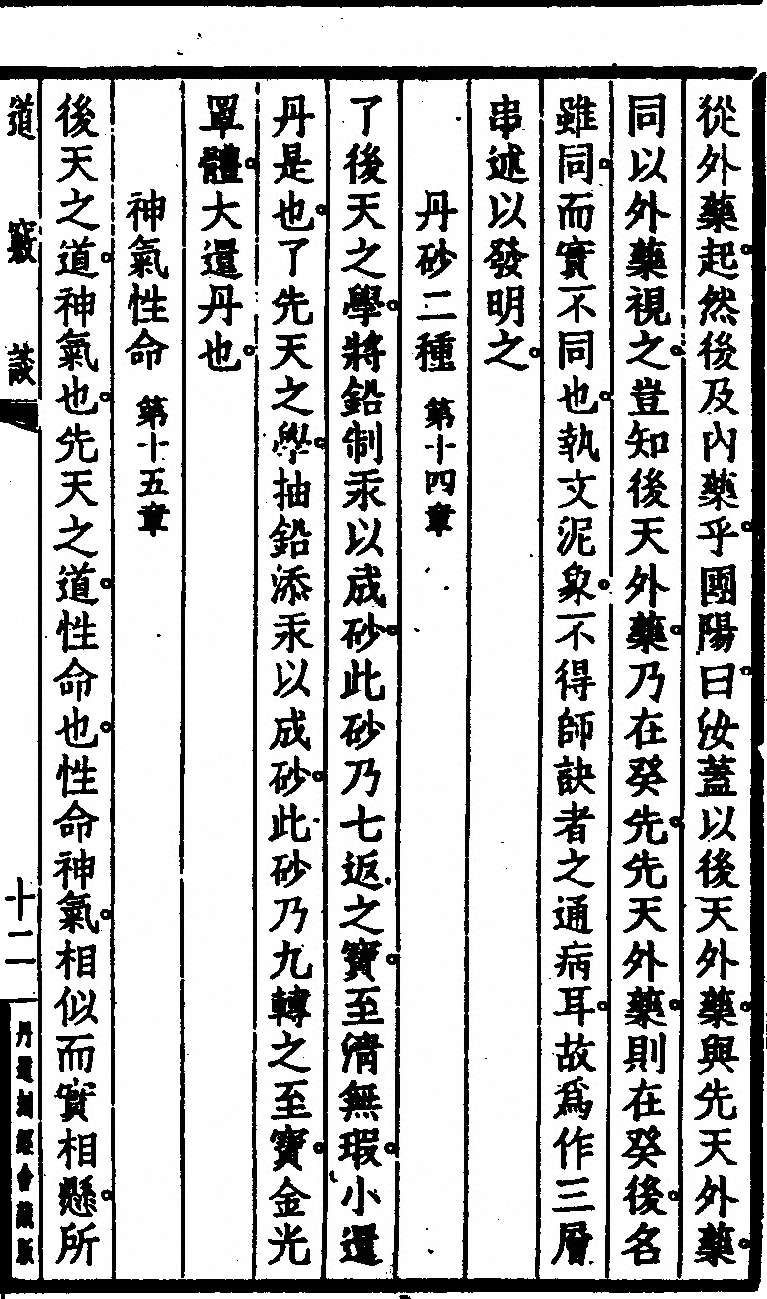 從外藥起然後及內藥乎團陽曰汝蓋以後天外藥與先天外藥
同以外藥視之豈知後天外藥乃在癸先先天外藥則在癸後名
雖同而實不同也執文泥象不得師訣者之通病耳故爲作三層
串述以發明之
丹砂二種 第十四章
了後天之學將鉛制汞以成砂此砂乃七返之寶至清無瑕小還
丹是也了先天之學抽鉛添汞以成砂此砂乃九轉之至寶金光
罩體大還丹也
神氣性命 第十五章
後天之道神氣也先天之道性命也性命神氣相似而實相懸所
道竅談 十二 丹道刻經會藏版